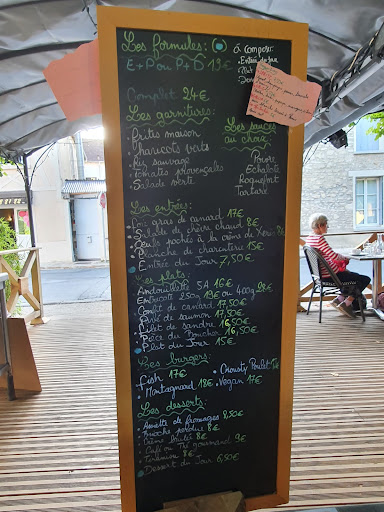 Les formules: (*)
à composer
Entrée du jour
Plat
E+P ou P+D 19€
Complet 24€
Les garnitures:
• Frites maison
• Haricots verts
• Riz sauvage
• Tomates provençales
• Salade verte
Les sauces
au choix:
Poivre
Echalote
Roquefort
Tartare
Les entrées:
• Foie gras de canard 17€
• Salade de chèvre chaud 8€
• Oeufs pochés à la crème de Xérès 8€
• Planche de charcuterie 15€
• Entrée du Jour 7,50€
Les plats:
• Andouillette 5A 16€
• Entrecote 250g 19€ ou 400g 28€
• Confit de canard 17,50€
• Pavé de saumon 17,50€
• Filet de sandre 16,50€
• Pièce du Boucher 16,50€
• Plat du Jour 15€
Les burgers:
• Fish 17€
• Crousty Poulet
• Montagnard 18€
• Vegan 17€
Les desserts:
• Assiette de fromages 8,50€
• Brioche perdue 8€
• Crème brulée 8€
• Café ou Thé gourmand 9€
• Tiramisu 8€
• Dessert du Jour 6,50€